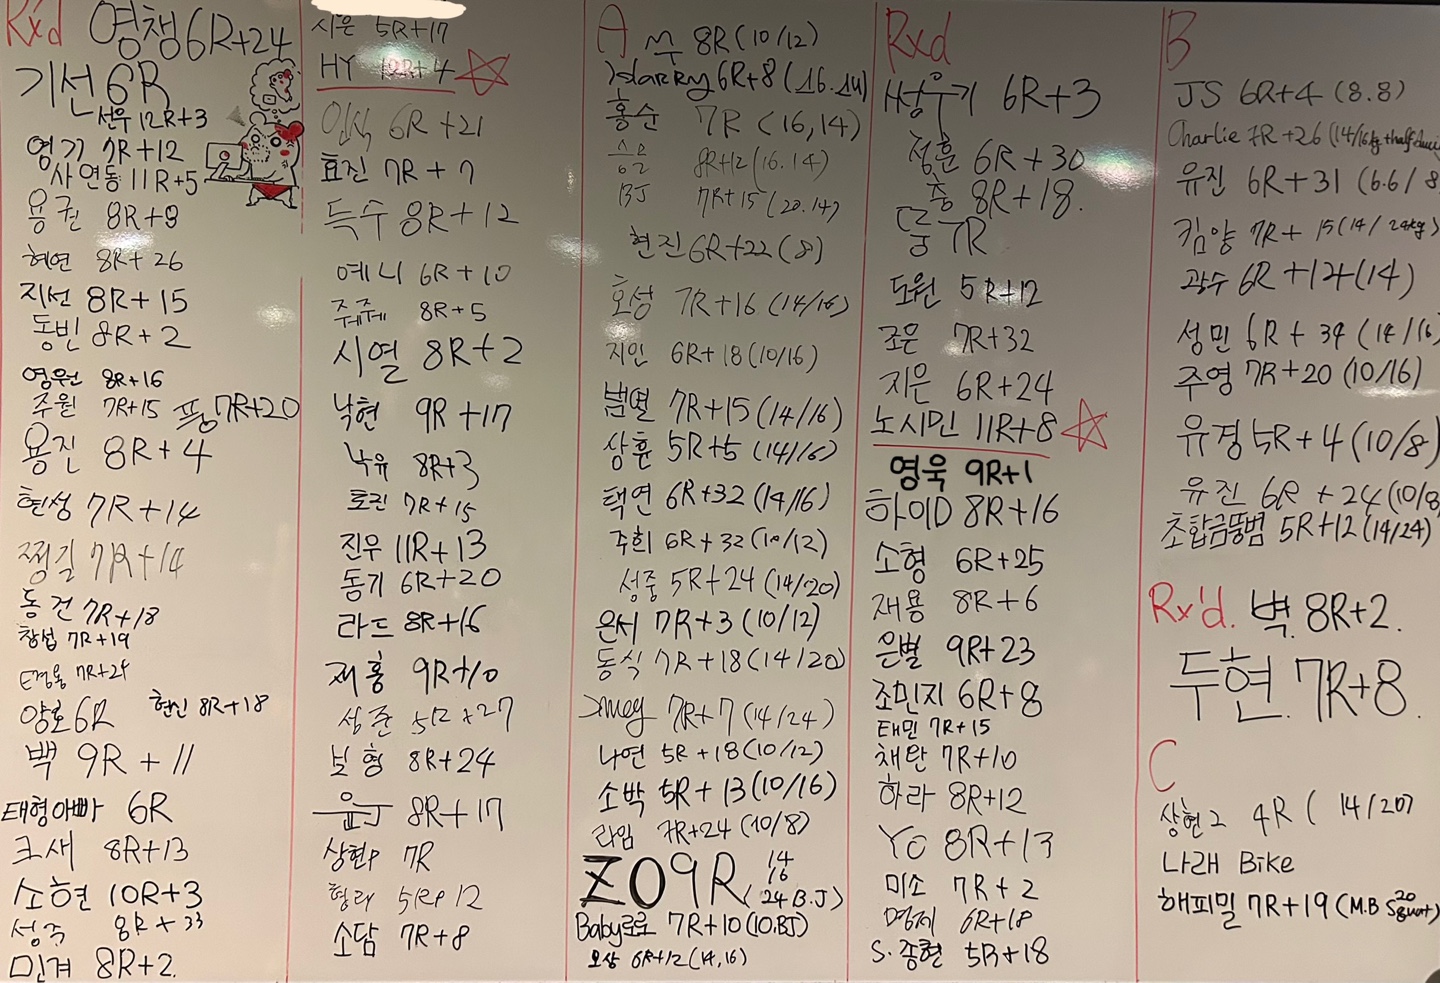 Rx'd 영챙 6R+24
기선 6R
선우 12R+3
영기 7R+12
사연동 11R+5
용권 8R+9
혜연 8R+26
지선 8R+15
동빈 8R+2
영원 8R+16
주원 7R+15 퐁 7R+20
용진 8R+4
현성 7R+14
찡길 7R+14
동건 7R+18
창섭 7R+19
7R+25
양호 6R 현신 8R+18
백 9R+11
태형아빠 6R
크새 8R+13
소현 10R+3
성주 8R+33
민겨 8R+2
시은 5R+17
HY 12R+4
인식 6R+21
효진 7R+7
득수 8R+12
예니 6R+10
쥬쥬 8R+5
시열 8R+2
낙현 9R+17
낙유 8R+3
효진 7R+15
진우 11R+13
동기 6R+20
라드 8R+16
재홍 9R+10
성준 5R+27
보형 8R+24
윤J 8R+17
상현P 7R
형래 5R+12
소담 7R+8
A
8R (10/12)
Harry 6R+8 (16.14)
홍순 7R (16,14)
8R+12 (16.14)
BJ 7R+15 (20.14)
현진 6R+22 (8)
호성 7R+16 (14/16)
지인 6R+18 (10/16)
범열 7R+15 (14/16)
상훈 5R+5 (14/16)
택연 6R+32 (14/16)
주희 6R+32 (10/12)
성중 5R+24 (14/20)
은서 7R+3 (10/12)
동식 7R+18 (14/20)
7R+7 (14/24)
나연 5R+18 (10/12)
소박 5R+13 (10/16)
라임 7R+24 (10/8)
ZO 9R (14 16 24 B.J)
Baby로로 7R+10 (10.BJ)
오상 6R+12 (14,16)
Rxd
쌍우기 6R+3
청훈 6R+30
중 8R+18.
둥 7R
도원 5R+12
조은 7R+32
지은 6R+24
노시민 11R+8
영욱 9R+1
하이D 8R+16
소형 6R+25
재용 8R+6
은별 9R+23
조민지 6R+8
태민 7R+15
채완 7R+10
하라 8R+12
YO 8R+13
미소 7R+2
명제 6R+18
S.종현 5R+18
B
JS 6R+4 (8.8)
Charlie 7R+26 (14/16kg+half
유진 6R+31 (6.6/8
킴양 7R+15 (14/24kg)
광수 6R+12+(14)
성민 6R+34 (14/16)
주영 7R+20 (10/16)
유경 5R+4 (10/8)
유진 6R+24 (10/8)
초합금뚱범 5R+12 (14/24)
Rx'd. 벽. 8R+2.
두현. 7R+8.
C
상현2 4R (14/20)
나래 Bike
해피밀 7R+19 (M.B 20 Squat)